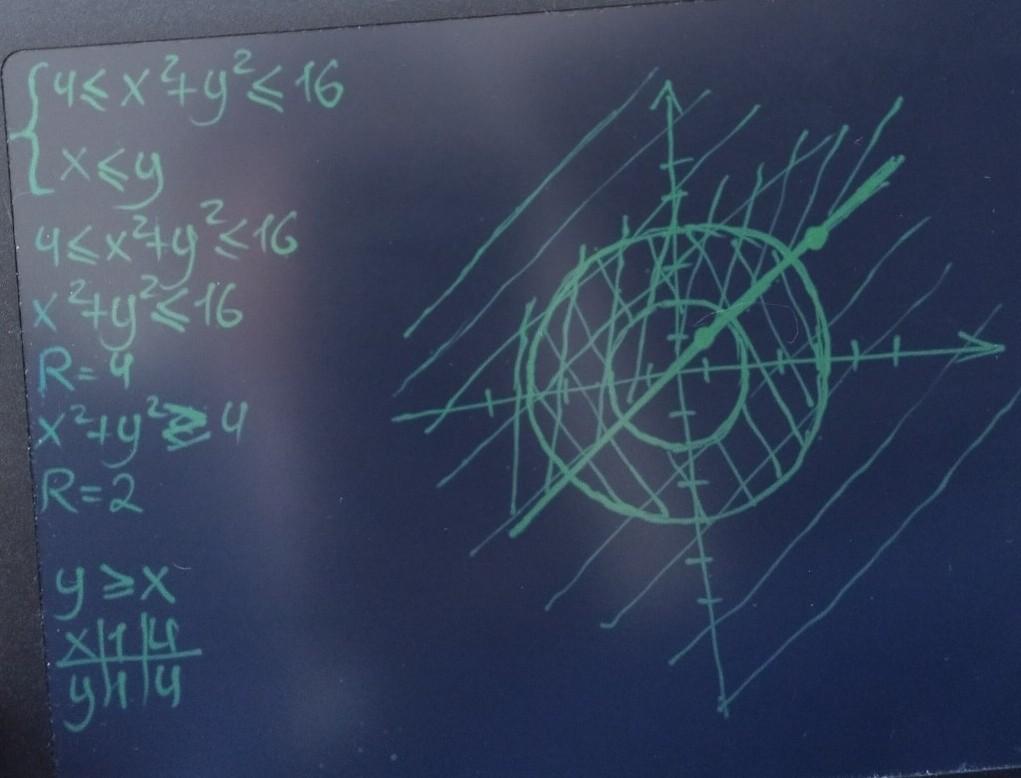 { 4 ≤ x²+y² ≤ 16
x ≤ y
4 ≤ x²+y² ≤ 16
x²+y² ≤ 16
R = 4
x²+y² ≥ 4
R = 2
y ≥ x
x | 1 | 4
y | 1 | 4